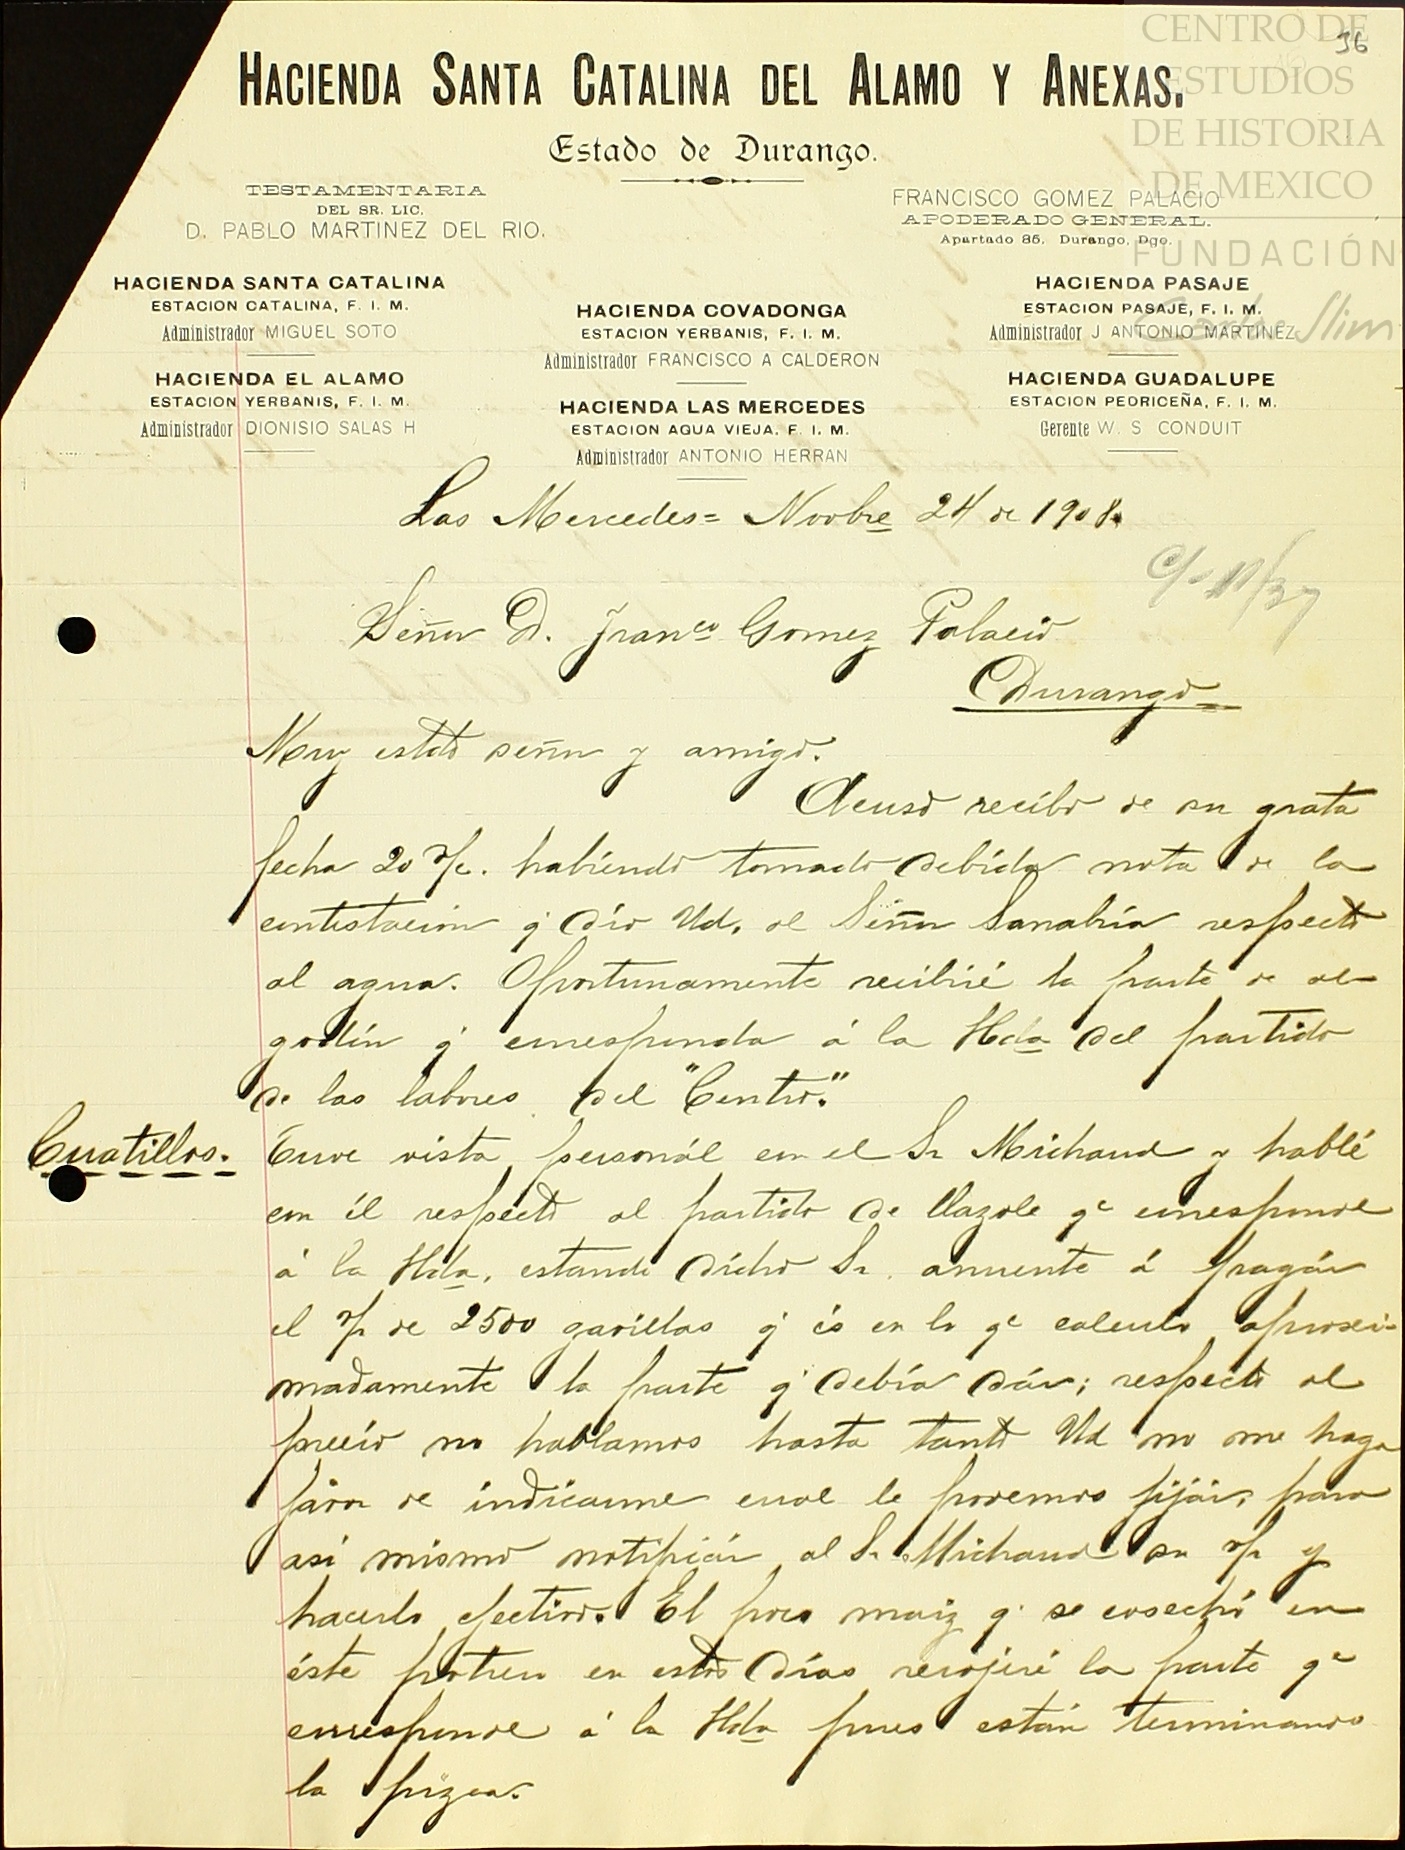 CENTRO DE
ESTUDIOS
DE HISTORIA
DE MEXICO
FUNDACIÓN
Carlos Slim
36
HACIENDA SANTA CATALINA DEL ALAMO Y ANEXAS.
Estado de Durango.
TESTAMENTARIA
DEL SR. LIC.
D. PABLO MARTINEZ DEL RIO.
FRANCISCO GOMEZ PALACIO
APODERADO GENERAL.
Apartado 85. Durango, Dgo.
HACIENDA SANTA CATALINA
ESTACION CATALINA, F. I. M.
Administrador MIGUEL SOTO
HACIENDA EL ALAMO
ESTACION YERBANIS, F. I. M.
Administrador DIONISIO SALAS H
HACIENDA COVADONGA
ESTACION YERBANIS, F. I. M.
Administrador FRANCISCO A CALDERON
HACIENDA LAS MERCEDES
ESTACION AGUA VIEJA, F. I. M.
Administrador ANTONIO HERRAN
HACIENDA PASAJE
ESTACION PASAJE, F. I. M.
Administrador J ANTONIO MARTINEZ
HACIENDA GUADALUPE
ESTACION PEDRICEÑA, F. I. M.
Gerente W. S CONDUIT
Las Mercedes= Novbre 24 de 1908.
Señor D. Franco Gomez Palacio
Durango
Muy estdo señor y amigo.
Acuso recibo de su grata
fecha 20 habiendo tomado debida nota de la
contestación q' dío Ud. al Señor Sanabria respecto
al agua. Oportunamente recibiré la parte de al-
godón q' corresponda á la Hda del partido
de las labores del "Centro."
Cuatillos. Tuve vista personál con el Sr Michaud y hablé
con él respecto al partido de tlazole qe corresponde
á la Hda, estando dícho Sr. anuente á pagár
el de 2500 gavillas q' és en lo qe calculo aproxi-
madamente la parte q' debía dár; respecto al
precio no hablamos hasta tanto Ud no me haga
favor de indicarme cual le podemos fijár, para
así mismo notificár al Sr. Michaud su y
hacerlo efectivo. El poco maiz q' se cosechó en
éste potrero en estos días recojeré la parte qe
corresponde á la Hda pues están terminando
la pizca.